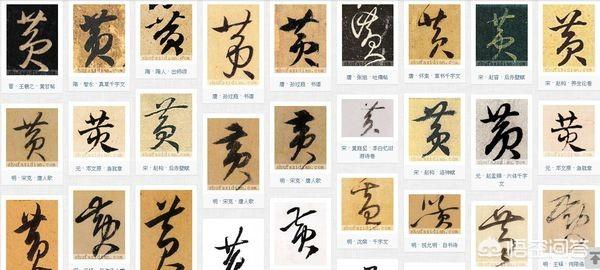 黄 黄 黄 黄 黄 黄 黄 黄 黄
晋·王羲之·黄甘帖
隋·智永·真草千字文
隋·隋人·出师颂
唐·孙过庭·书谱
唐·孙过庭·书谱
唐·张旭·肚痛帖
唐·怀素·草书千字文
宋·赵构·后赤壁赋
宋·赵构·养生论卷
黄 黄 黄 黄 黄 黄 黄 黄 黄
明·宋克·唐人歌
元·邓文原·急就章
宋·赵构·后赤壁赋
明·宋克·唐人歌
明·宋克·唐人歌
宋·黄庭坚·李白忆旧游诗卷
宋·赵构·洛神赋
元·赵孟頫·六体千字文
元·邓文原·急就章
黄 黄 黄 黄 黄 黄 黄 黄 黄
明·沈粲·千字文
明·祝允明·自书诗
悟空问答